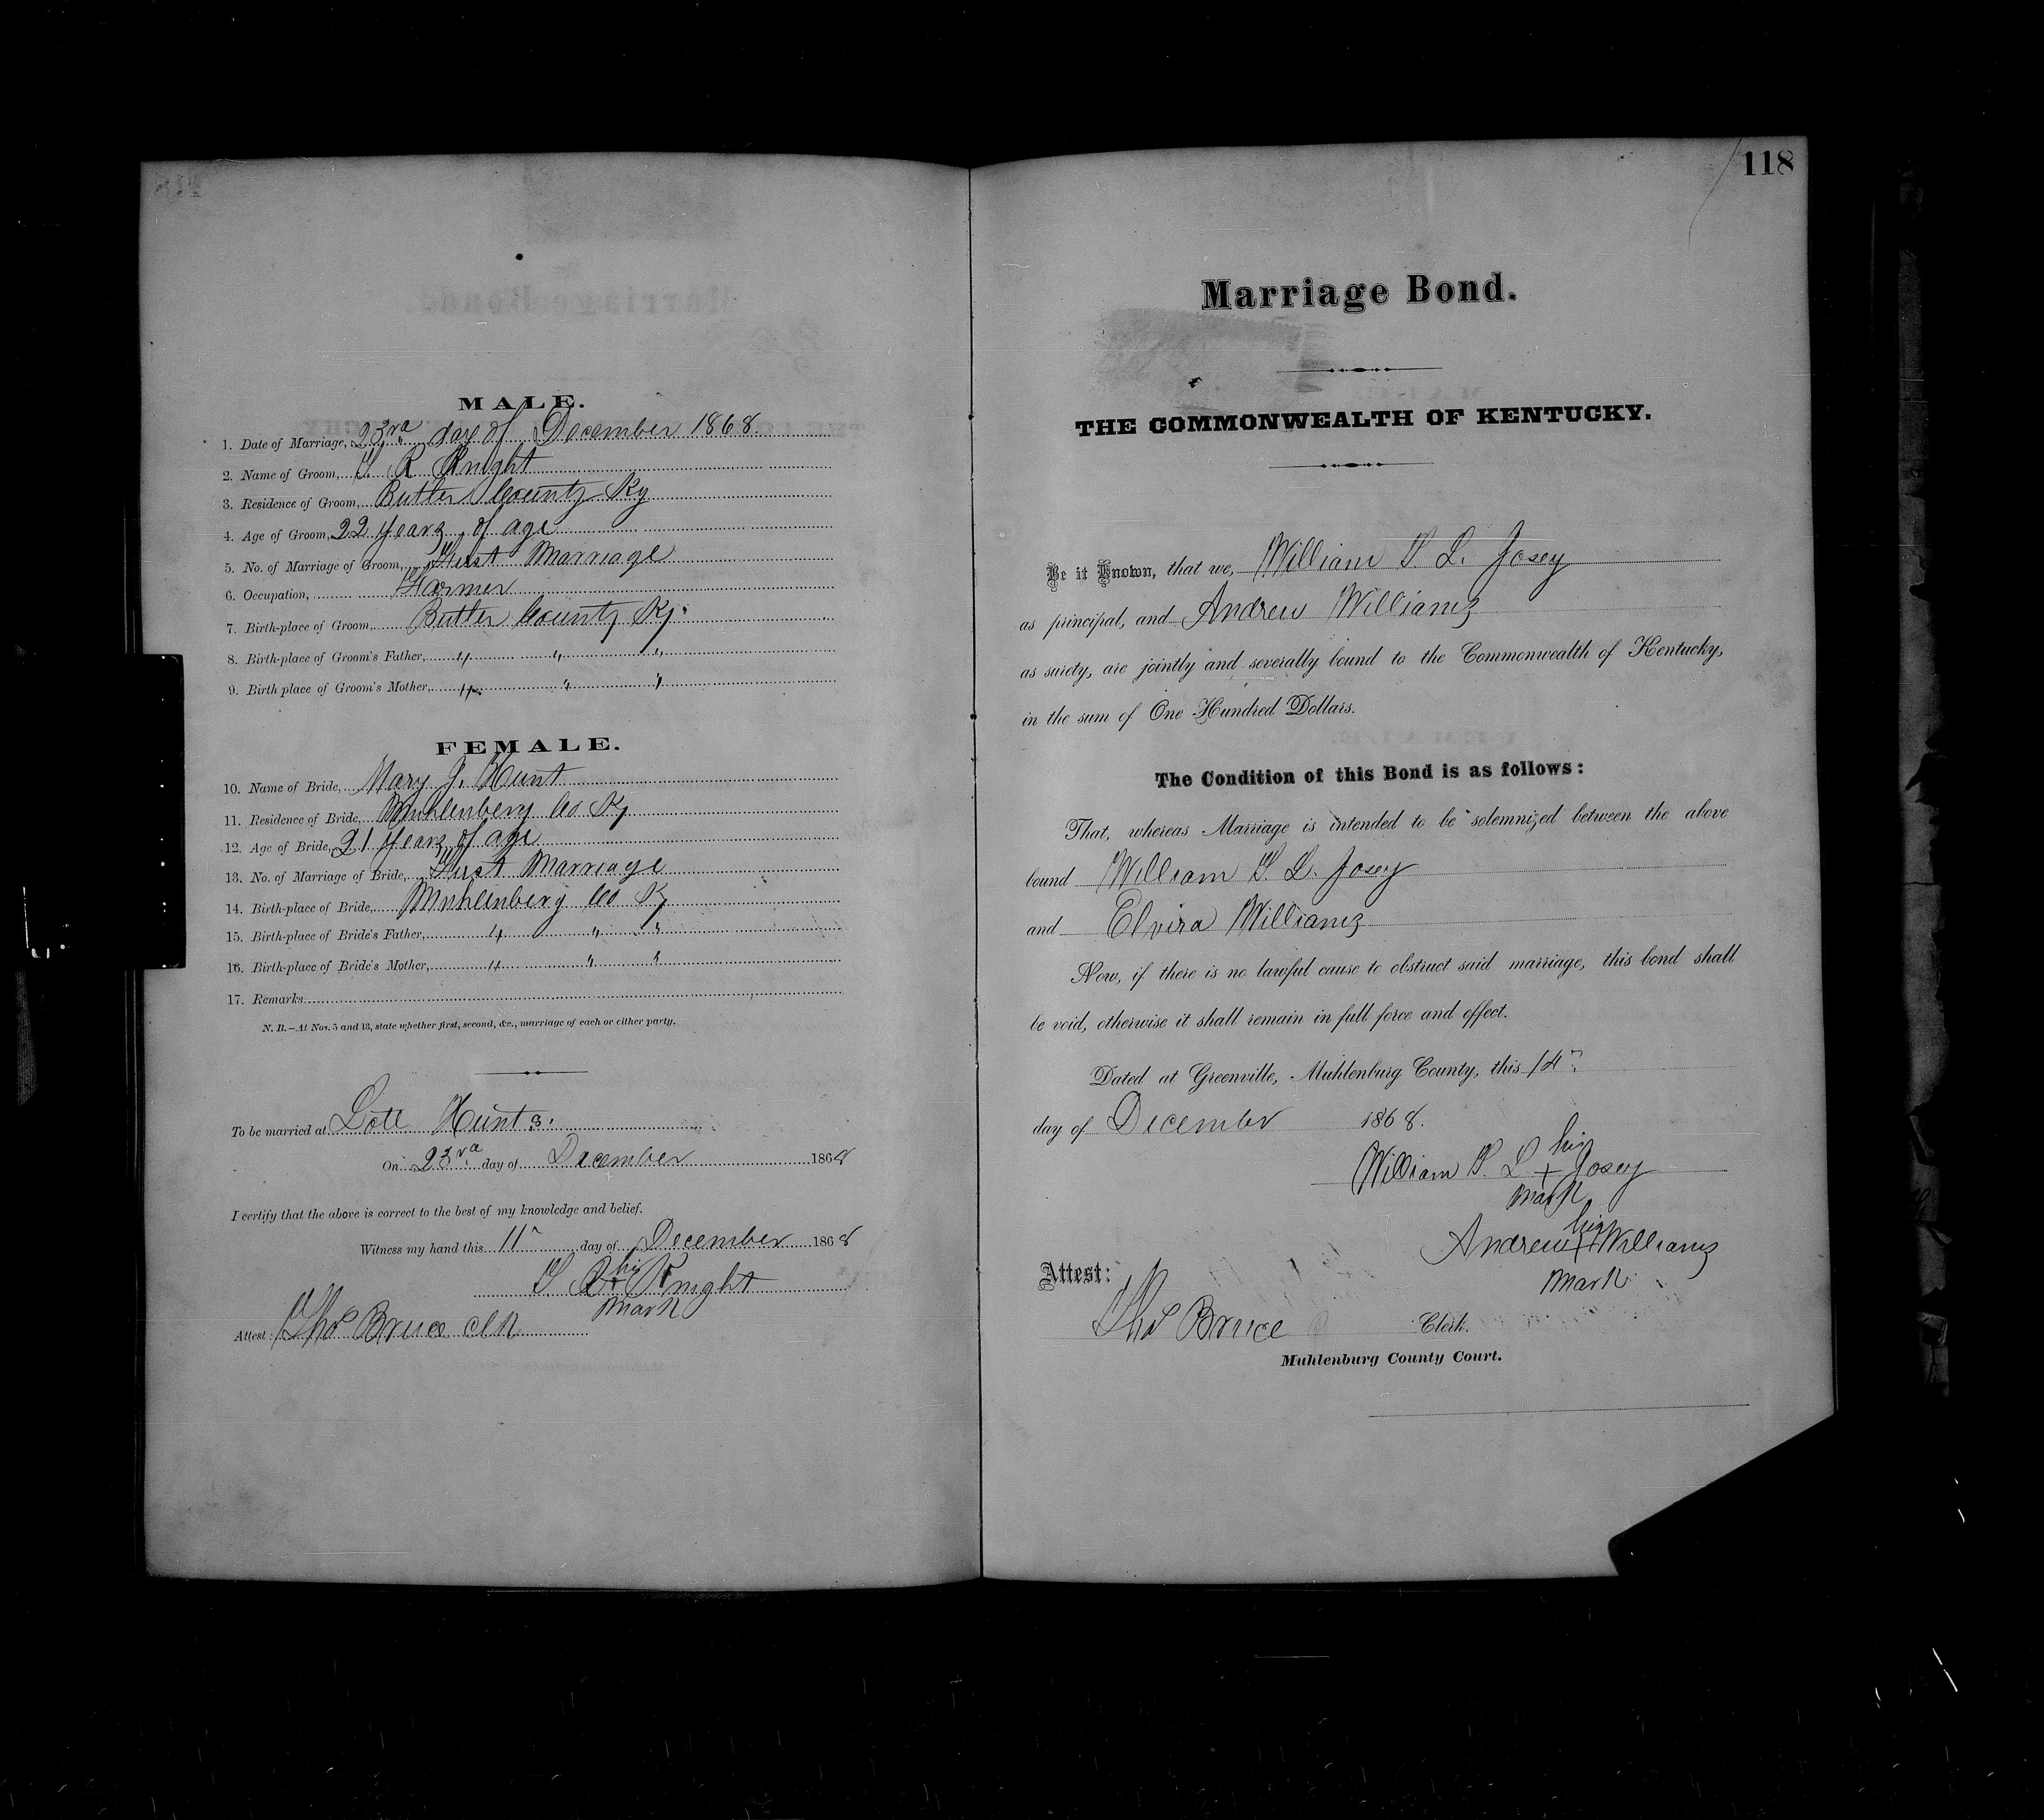 MALE.
1. Date of Marriage, 23rd day of December 1868.
2. Name of Groom, T R Knight
3. Residence of Groom, Butler County Ky
4. Age of Groom, 22 years of age
5. No. of Marriage of Groom, First Marriage
6. Occupation, Farmer
7. Birth-place of Groom, Butler County Ky.
8. Birth-place of Groom's Father, " " "
9. Birth place of Groom's Mother, " " "
FEMALE.
10. Name of Bride, Mary J. Hunt
11. Residence of Bride, Muhlenberg Co Ky
12. Age of Bride, 21 years of age
13. No. of Marriage of Bride, First Marriage
14. Birth-place of Bride, Muhlenberg Co Ky
15. Birth-place of Bride's Father, " " "
16. Birth-place of Bride's Mother, " " "
17. Remarks
N. B.—At Nos. 5 and 13, state whether first, second, &c., marriage of each or either party.
To be married at Hunts.
On 23rd day of December 1868
I certify that the above is correct to the best of my knowledge and belief.
Witness my hand this 11 day of December 1868
his
T. R + Knight
mark
Attest: Tho Bruce Clk
118
Marriage Bond.
THE COMMONWEALTH OF KENTUCKY.
Be it Known, that we, William T. L. Josey
as principal, and Andrew Williams
as surety, are jointly and severally bound to the Commonwealth of Kentucky,
in the sum of One Hundred Dollars.
The Condition of this Bond is as follows:
That, whereas Marriage is intended to be solemnized between the above
bound William T. L. Josey
and Elvira Williams
Now, if there is no lawful cause to obstruct said marriage, this bond shall
be void, otherwise it shall remain in full force and effect.
Dated at Greenville, Muhlenburg County, this 14
day of December 1868.
his
William T. L + Josey
mark
his
Andrew + Williams
mark
Attest:
Tho Bruce Clerk.
Muhlenburg County Court.